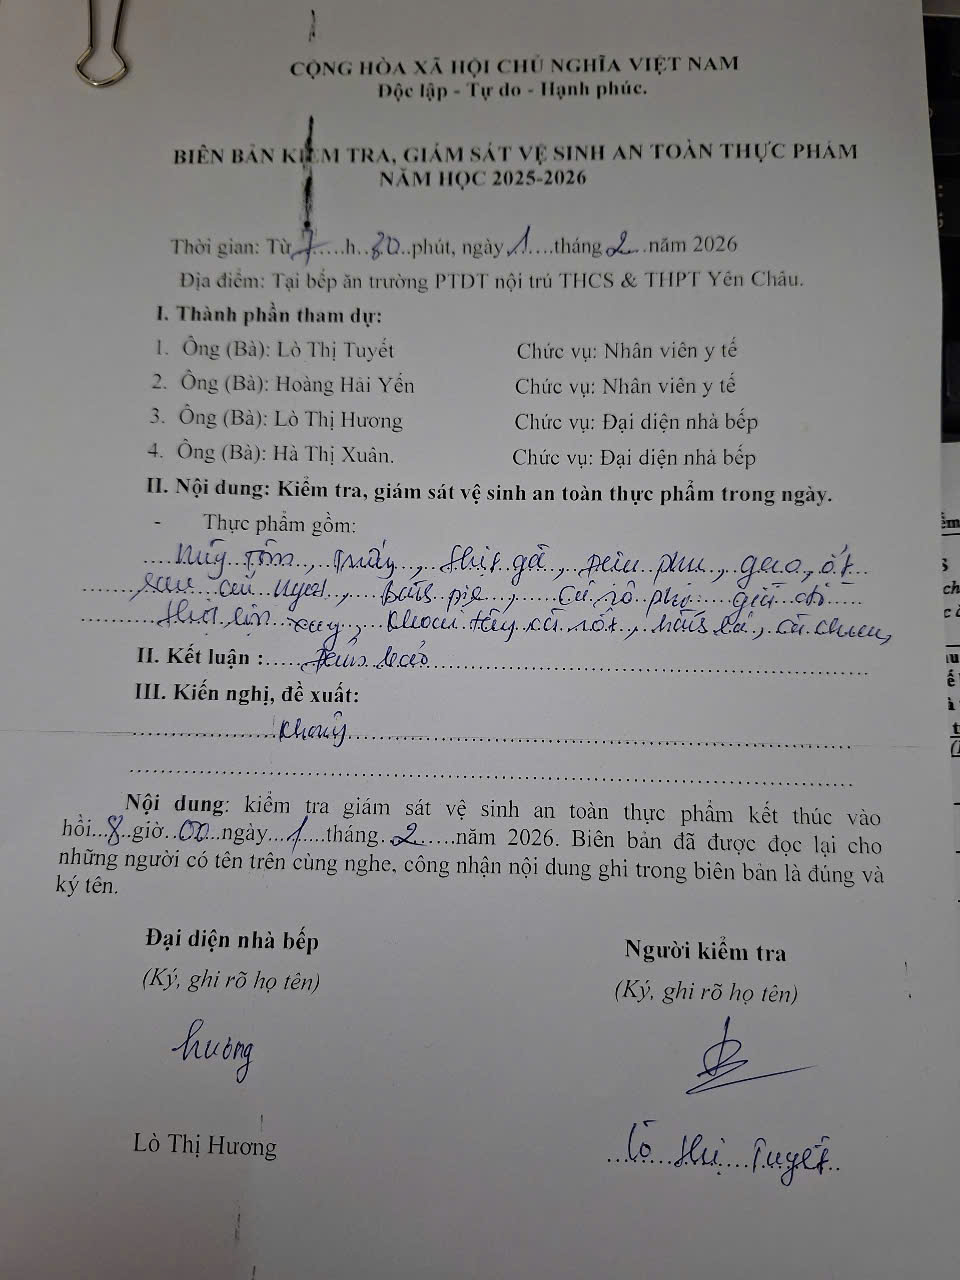 CỘNG HÒA XÃ HỘI CHỦ NGHĨA VIỆT NAM
Độc lập - Tự do - Hạnh phúc.
BIÊN BẢN KIỂM TRA, GIÁM SÁT VỆ SINH AN TOÀN THỰC PHẨM
NĂM HỌC 2025-2026
Thời gian: Từ 7.....h..30..phút, ngày 1....tháng 2...năm 2026
Địa điểm: Tại bếp ăn trường PTDT nội trú THCS & THPT Yên Châu.
I. Thành phần tham dự:
1. Ông (Bà): Lò Thị Tuyết Chức vụ: Nhân viên y tế
2. Ông (Bà): Hoàng Hải Yến Chức vụ: Nhân viên y tế
3. Ông (Bà): Lò Thị Hương Chức vụ: Đại diện nhà bếp
4. Ông (Bà): Hà Thị Xuân. Chức vụ: Đại diện nhà bếp
II. Nội dung: Kiểm tra, giám sát vệ sinh an toàn thực phẩm trong ngày.
- Thực phẩm gồm:
....Mỳ tôm, trứng, thịt gà, đậu phụ, gạo, ớt
rau cải ngọt, cá rô phi
thịt lợn xay, khoai tây, cà rốt, hành lá, cà chua,
II. Kết luận :..... Đảm bảo
III. Kiến nghị, đề xuất:
Không
Nội dung: kiểm tra giám sát vệ sinh an toàn thực phẩm kết thúc vào
hồi...8..giờ..00..ngày...1....tháng..2.....năm 2026. Biên bản đã được đọc lại cho
những người có tên trên cùng nghe, công nhận nội dung ghi trong biên bản là đúng và
ký tên.
Đại diện nhà bếp Người kiểm tra
(Ký, ghi rõ họ tên) (Ký, ghi rõ họ tên)
Hương
Lò Thị Hương Lò Thị Tuyết